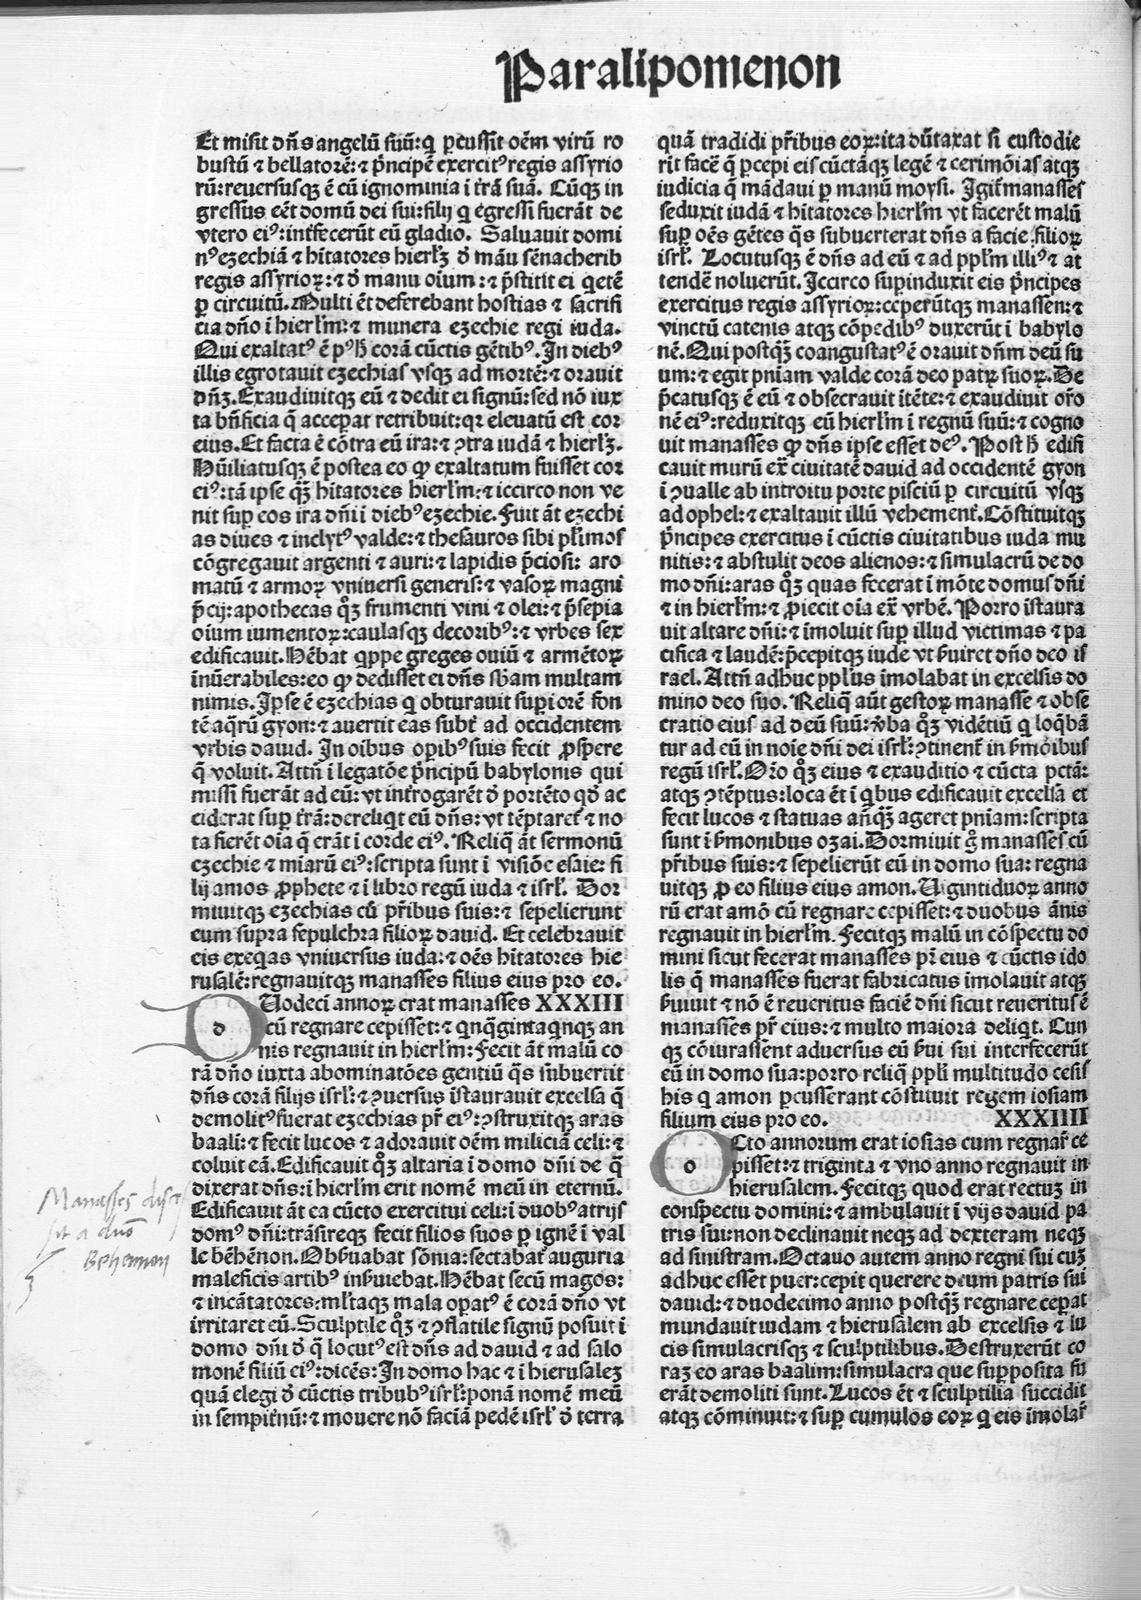 Paralipomenon
Et misit dñs angelũ suũ: q̃ ꝑcussit oẽm virũ ro
bustũ ⁊ bellatorẽ: ⁊ p̃ncipẽ exercitꝰ regis assyrio
rũ: reuersusqꝫ ẽ cũ ignominia ĩ trã suã. Cũqꝫ in
gressus eẽt domũ dei sui: filij q̃ egressi fuerãt de
vtero eiꝰ: int̃fecerũt eũ gladio. Saluauit domi
nꝰ ezechiã ⁊ hitatores hierlꝫ d̃ mãu senacherib
regis assyrioꝝ: ⁊ d̃ manu oium: ⁊ p̃stitit ei q̃etẽ
ꝑ circuitũ. Multi ẽt deferebant hostias ⁊ sacrifi
cia dño ĩ hierl̃m: ⁊ munera ezechie regi iuda.
Qui exaltatꝰ ẽ pꝰ h̃ corã cũctis gẽtibꝰ. In diebꝰ
illis egrotauit ezechias vsqꝫ ad mortẽ: ⁊ orauit
dñꝫ. Exaudiuitqꝫ eũ ⁊ dedit ei signũ: sed nõ iux
ta bñficia q̃ acceꝑat retribuit: qꝛ eleuatũ est cor
eius. Et facta ẽ cõtra eũ ira: ⁊ ꝯtra iudã ⁊ hierlꝫ.
Hũiliatusqꝫ ẽ postea eo ꝙ exaltatum fuisset cor
eiꝰ: tã ipse qꝫ̃ hitatores hierl̃m: ⁊ iccirco non ve
nit suꝑ eos ira dñi ĩ diebꝰ ezechie. Fuit ãt ezechi
as diues ⁊ inclytꝰ valde: ⁊ thesauros sibi pl̃imos
cõgregauit argenti ⁊ auri: ⁊ lapidis p̃ciosi: aro
matũ ⁊ armoꝝ vniuersi generis: ⁊ vasoꝝ magni
p̃cij: apothecas qꝫ̊ frumenti vini ⁊ olei: ⁊ p̃sepia
oium iumentoꝝ: caulasqꝫ decoribꝰ: ⁊ vrbes sex
edificauit. Hẽbat q̃ppe greges ouiũ ⁊ armẽtoꝝ
inũerabiles: eo ꝙ dedisset ei dñs sb̃am multam
nimis. Ipse ẽ ezechias q̃ obturauit suꝑiorẽ fon
tẽ aq̃rũ gyon: ⁊ auertit eas subt̃ ad occidentem
vrbis dauid. In oibus oꝑibꝰ suis fecit ꝓspere
q̃ voluit. Attñ ĩ legatõe p̃ncipũ babylonis qui
missi fuerãt ad eũ: vt int̃rogarẽt d̃ portẽto qd̃ ac
ciderat suꝑ t̃rã: dereliq̃t eũ dñs: vt tẽptaret̃ ⁊ no
ta fierẽt oĩa q̃ erãt ĩ corde eiꝰ. Reliq̃ ãt sermonũ
ezechie ⁊ miãrũ eiꝰ: scripta sunt ĩ visiõe esaie: fi
lij amos ꝓphete ⁊ ĩ libro regũ iuda ⁊ isrl̃. Dor
miuitqꝫ ezechias cũ pr̃ibus suis: ⁊ sepelierunt
eum supra sepulchra filioꝝ dauid. Et celebrauit
eis exeq̃as vniuersus iuda: ⁊ oẽs hitatores hie
rusalẽ: regnauitqꝫ manasses filius eius pro eo.
dUodeci annoꝝ erat manasses XXXIII
cũ regnare cepisset: ⁊ q̃nq̃gintaq̃nqꝫ an
nis regnauit in hierl̃m: Fecit ãt malũ co
rã dño iuxta abominatões gentiũ q̃s subuertit
dñs corã filijs isrl̃: ⁊ ꝯuersus ĩstaurauit excelsa q̃
demolitꝰ fuerat ezechias pr̃ eiꝰ: ꝯstruxitqꝫ aras
baali: ⁊ fecit lucos ⁊ adorauit oẽm miliciã celi: ⁊
coluit eã. Edificauit qꝫ̊ altaria ĩ domo dñi de q̃
dixerat dñs: ĩ hierl̃m erit nomẽ meũ in eternũ.
Edificauit ãt ea cũcto exercitui celi: ĩ duobꝰ atrijs
domꝰ dñi: trãsireqꝫ fecit filios suos ꝑ ignẽ ĩ val
le bẽhẽnon. Obẽruabat sõnia: sectabat̃ auguria
maleficis artibꝰ inẽuiebat. Hẽbat secũ magos:
⁊ incãtatores: ml̃taqꝫ mala oꝑatꝰ ẽ corã dño vt
irritaret eũ. Sculptile qꝫ̊ ⁊ ꝯflatile signũ posuit ĩ
domo dñi d̃ q̃ locutꝰ est dñs ad dauid ⁊ ad salo
monẽ filiũ eiꝰ: dicẽs: In domo hac ⁊ ĩ hierusaleꝫ
quã elegi d̃ cũctis tribubꝰ isrl̃: ponã nomẽ meũ
in sempit̃nũ: ⁊ mouere nõ faciã pedẽ isrl̃ d̃ terra
Manasses
a
Behennon
quã tradidi pr̃ibus eoꝝ: ita dũtaxat si custodie
rit facẽ q̃ p̃cepi eis cũctãqꝫ legẽ ⁊ cerimõias atqꝫ
iudicia q̃ mãdaui ꝑ manũ moysi. Igit̃ manasses
seduxit iudã ⁊ hitatores hierl̃m vt facerẽt malũ
suꝑ oẽs gẽtes q̃s subuerterat dñs a facie filioꝝ
isrl̃. Locutusqꝫ ẽ dñs ad eũ ⁊ ad ppl̃m illiꝰ ⁊ at
tendẽ noluerũt. Iccirco suꝑinduxit eis p̃ncipes
exercitus regis assyrioꝝ: ceperũtqꝫ manassen: ⁊
vinctũ catenis atqꝫ cõpedibꝰ duxerũt ĩ babylo
nẽ. Qui postqꝫ̃ coangustatꝰ ẽ orauit dñm deũ su
um: ⁊ egit pniam valde corã deo patꝝ suoꝝ. De
p̃catusqꝫ ẽ eũ ⁊ obsecrauit ĩtẽte: ⁊ exaudiuit or̃o
nẽ eiꝰ: reduxitqꝫ eũ hierl̃m ĩ regnũ suũ: ⁊ cogno
uit manasses ꝙ dñs ipse esset deꝰ. Post h̃ edifi
cauit murũ ex̃ ciuitatẽ dauid ad occidentẽ gyon
ĩ ꝯualle ab introitu porte pisciũ ꝑ circuitũ vsqꝫ
ad ophel: ⁊ exaltauit illũ vehement̃. Cõstituitqꝫ
p̃ncipes exercitus ĩ cũctis ciuitatibus iuda mu
nitis: ⁊ abstulit deos alienos: ⁊ simulacrũ de do
mo dñi: aras qꝫ quas fecerat ĩ mõte domus dñi
⁊ in hierl̃m: ⁊ ꝓiecit oĩa ex̃ vrbẽ. Porro ĩstaura
uit altare dñi: ⁊ ĩmolauit suꝑ illud victimas ⁊ pa
cifica ⁊ laudẽ: p̃cepitqꝫ iude vt ẽuiret dño deo is
rael. Attñ adhuc ppl̃us ĩmolabat in excelsis do
mino deo suo. Reliq̃ aũt gestoꝝ manasse ⁊ obse
cratio eius ad deũ suũ: v̾ba qꝫ̊ vidẽtiũ q̃ loq̃bã
tur ad eũ in noĩe dñi dei isrl̃: ꝯtinent̃ in ẽmõibus
regũ isrl̃. Or̃o qꝫ̊ eius ⁊ exauditio ⁊ cũcta pctã:
atqꝫ ꝯtẽptus: loca ẽt ĩ q̃bus edificauit excelsa et
fecit lucos ⁊ statuas añq̃ꝫ ageret pniam: scripta
sunt ĩ ẽmonibus ozai. Dormiuit g̊ manasses cũ
pr̃ibus suis: ⁊ sepelierũt eũ in domo sua: regna
uitqꝫ ꝓ eo filius eius amon. Uigintiduoꝝ anno
rũ erat amõ cũ regnare cepisset: ⁊ duobus ãnis
regnauit in hierl̃m. Fecitqꝫ malũ in cõspectu do
mini sicut fecerat manasses pr̃ eius ⁊ cũctis ido
lis q̃ manasses fuerat fabricatus imolauit atqꝫ
ẽuiuit ⁊ nõ ẽ reueritus faciẽ dñi sicut reueritus ẽ
manasses pr̃ eius: ⁊ multo maiora deliq̃t. Cun
qꝫ cõiurassent aduersus eũ ẽui sui interfecerũt
eũ in domo sua: porro reliq̃ ppl̃i multitudo cesis
his q̃ amon ꝑcusserant cõstituit regem iosiam
filium eius pro eo. XXXIIII
oCto annorum erat iosias cum regnar̃ ce
pisset: ⁊ triginta ⁊ vno anno regnauit in
hierusalem. Fecitqꝫ quod erat rectuꝫ in
conspectu domini: ⁊ ambulauit ĩ vijs dauid pa
tris sui: non declinauit neqꝫ ad dexteram neqꝫ
ad sinistram. Octauo autem anno regni sui cuꝫ
adhuc esset puer: cepit querere deum patris sui
dauid: ⁊ duodecimo anno postqꝫ̃ regnare ceperat
mundauit iudam ⁊ hierusalem ab excelsis ⁊ lu
cis simulacrisqꝫ ⁊ sculptilibus. Destruxerũt co
raꝫ eo aras baalim: simulacra que suꝑposita fu
erãt demoliti sunt. Lucos ẽt ⁊ sculptilia succidit
atqꝫ cõminuit: ⁊ suꝑ cumulos eoꝝ q̃ eis imolar̃